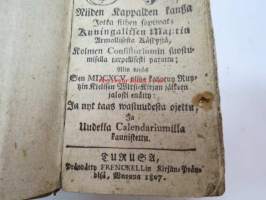 Niiden Kappalden kansa
Jotka siihen sopiwat:
Kuningalisen Maj:tin
Armollisesta Käskystä,
Kolmen Consistoriumin suostu-
misella tarpellisesti parattu;
Nijn
Sen MDCXCV. Ruo-
zin Kielisen Wirsi-Kirjan jälken
jalosti enätty:
Ja nyt taas wastudesta ojettu,
Ja
Uudella Calendariumilla
kaunistettu.
TURUSA,
Prändätty FRENCKELLin Kirjan-Prän-
disä, Wuonna 1807.